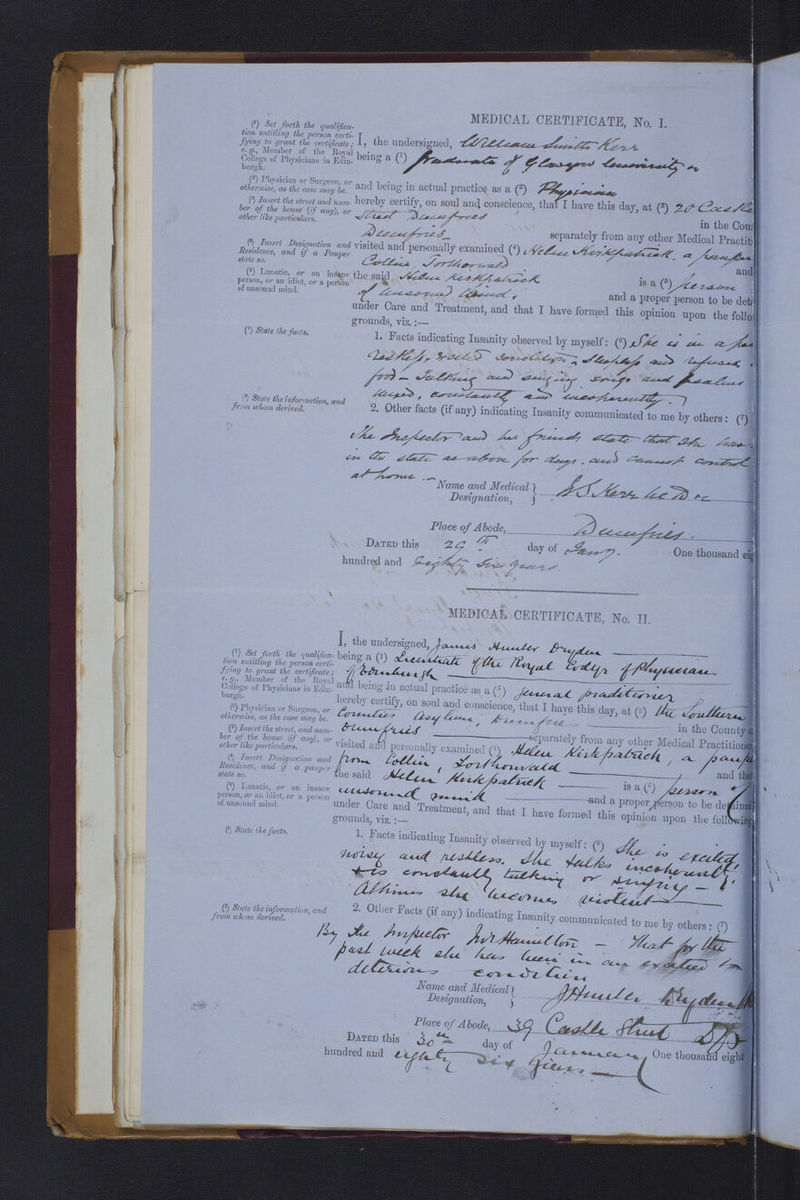 MEDICAL CERTIFICATE, No. I.
(¹) Set forth the qualifica-
tion entitling the person certi-
fying to grant the certificate;
e.g., Member of the Royal
College of Physicians in Edin-
burgh.
I, the undersigned, William Smith Kerr
being a (¹) Graduate of Glasgow University &
(²) Physician or Surgeon, or
otherwise, as the case may be.
and being in actual practice as a (²) Physician
(³) Insert the street and num-
ber of the house (if any), or
other like particulars.
hereby certify, on soul and conscience, that I have this day, at (³) 20 Castle
Street Dumfries in the Coun
Dumfries separately from any other Medical Practiti
(⁴) Insert Designation and
Residence, and if a Pauper
state so.
visited and personally examined (⁴) Helen Kirkpatrick, a pauper
Collin Torthorwald and
(⁵) Lunatic, or an insane
person, or an idiot, or a person
of unsound mind.
the said Helen Kirkpatrick is a (⁵) person
of unsound mind, and a proper person to be deta
under Care and Treatment, and that I have formed this opinion upon the follo
grounds, viz.:—
(⁶) State the facts.
1. Facts indicating Insanity observed by myself: (⁶) She is in a
restless, excited condition, sleepless and refuses
food – Talking and singing songs and psalms
mixed, constantly and incoherently.
(⁷) State the information, and
from whom derived.
2. Other facts (if any) indicating Insanity communicated to me by others: (⁷)
The Inspector and her friends state that she has
in the state as above for days. and cannot control
at home.
Name and Medical
Designation, } W S Kerr M.D &c
Place of Abode, Dumfries.
DATED this 29th day of Jany. One thousand eig
hundred and Eighty Six years
MEDICAL CERTIFICATE, No. II.
(¹) Set forth the qualifica-
tion entitling the person certi-
fying to grant the certificate;
e.g., Member of the Royal
College of Physicians in Edin-
burgh.
I, the undersigned, James Hunter Dryden
being a (¹) Licentiate of the Royal College of Physicians
of Edinburgh
(²) Physician or Surgeon, or
otherwise, as the case may be.
and being in actual practice as a (²) general practitioner
(³) Insert the street, and num-
ber of the house (if any), or
other like particulars.
hereby certify, on soul and conscience, that I have this day, at (³) the Southern
Counties Asylum, Dumfries in the County o
Dumfries separately from any other Medical Practitioner
(⁴) Insert Designation and
Residence, and if a pauper
state so.
visited and personally examined (⁴) Helen Kirkpatrick, a paupe
from Collin, Torthorwald and tha
(⁵) Lunatic, or an insane
person, or an idiot, or a person
of unsound mind.
the said Helen Kirkpatrick is a (⁵) person of
unsound mind and a proper person to be detained
under Care and Treatment, and that I have formed this opinion upon the following
grounds, viz.:—
(⁶) State the facts.
1. Facts indicating Insanity observed by myself: (⁶) She is excited
noisy and restless. She talks incoherently
& is constantly talking or singing –
At times she becomes violent
(⁷) State the information, and
from whom derived.
2. Other Facts (if any) indicating Insanity communicated to me by others: (⁷)
By the Inspector Mr Hamilton – That for the
past week she has been in an excited &
delirious condition
Name and Medical
Designation, } J Hunter Dryden
Place of Abode, 39 Castle Street D/s
DATED this 30th day of January One thousand eight
hundred and eighty six years